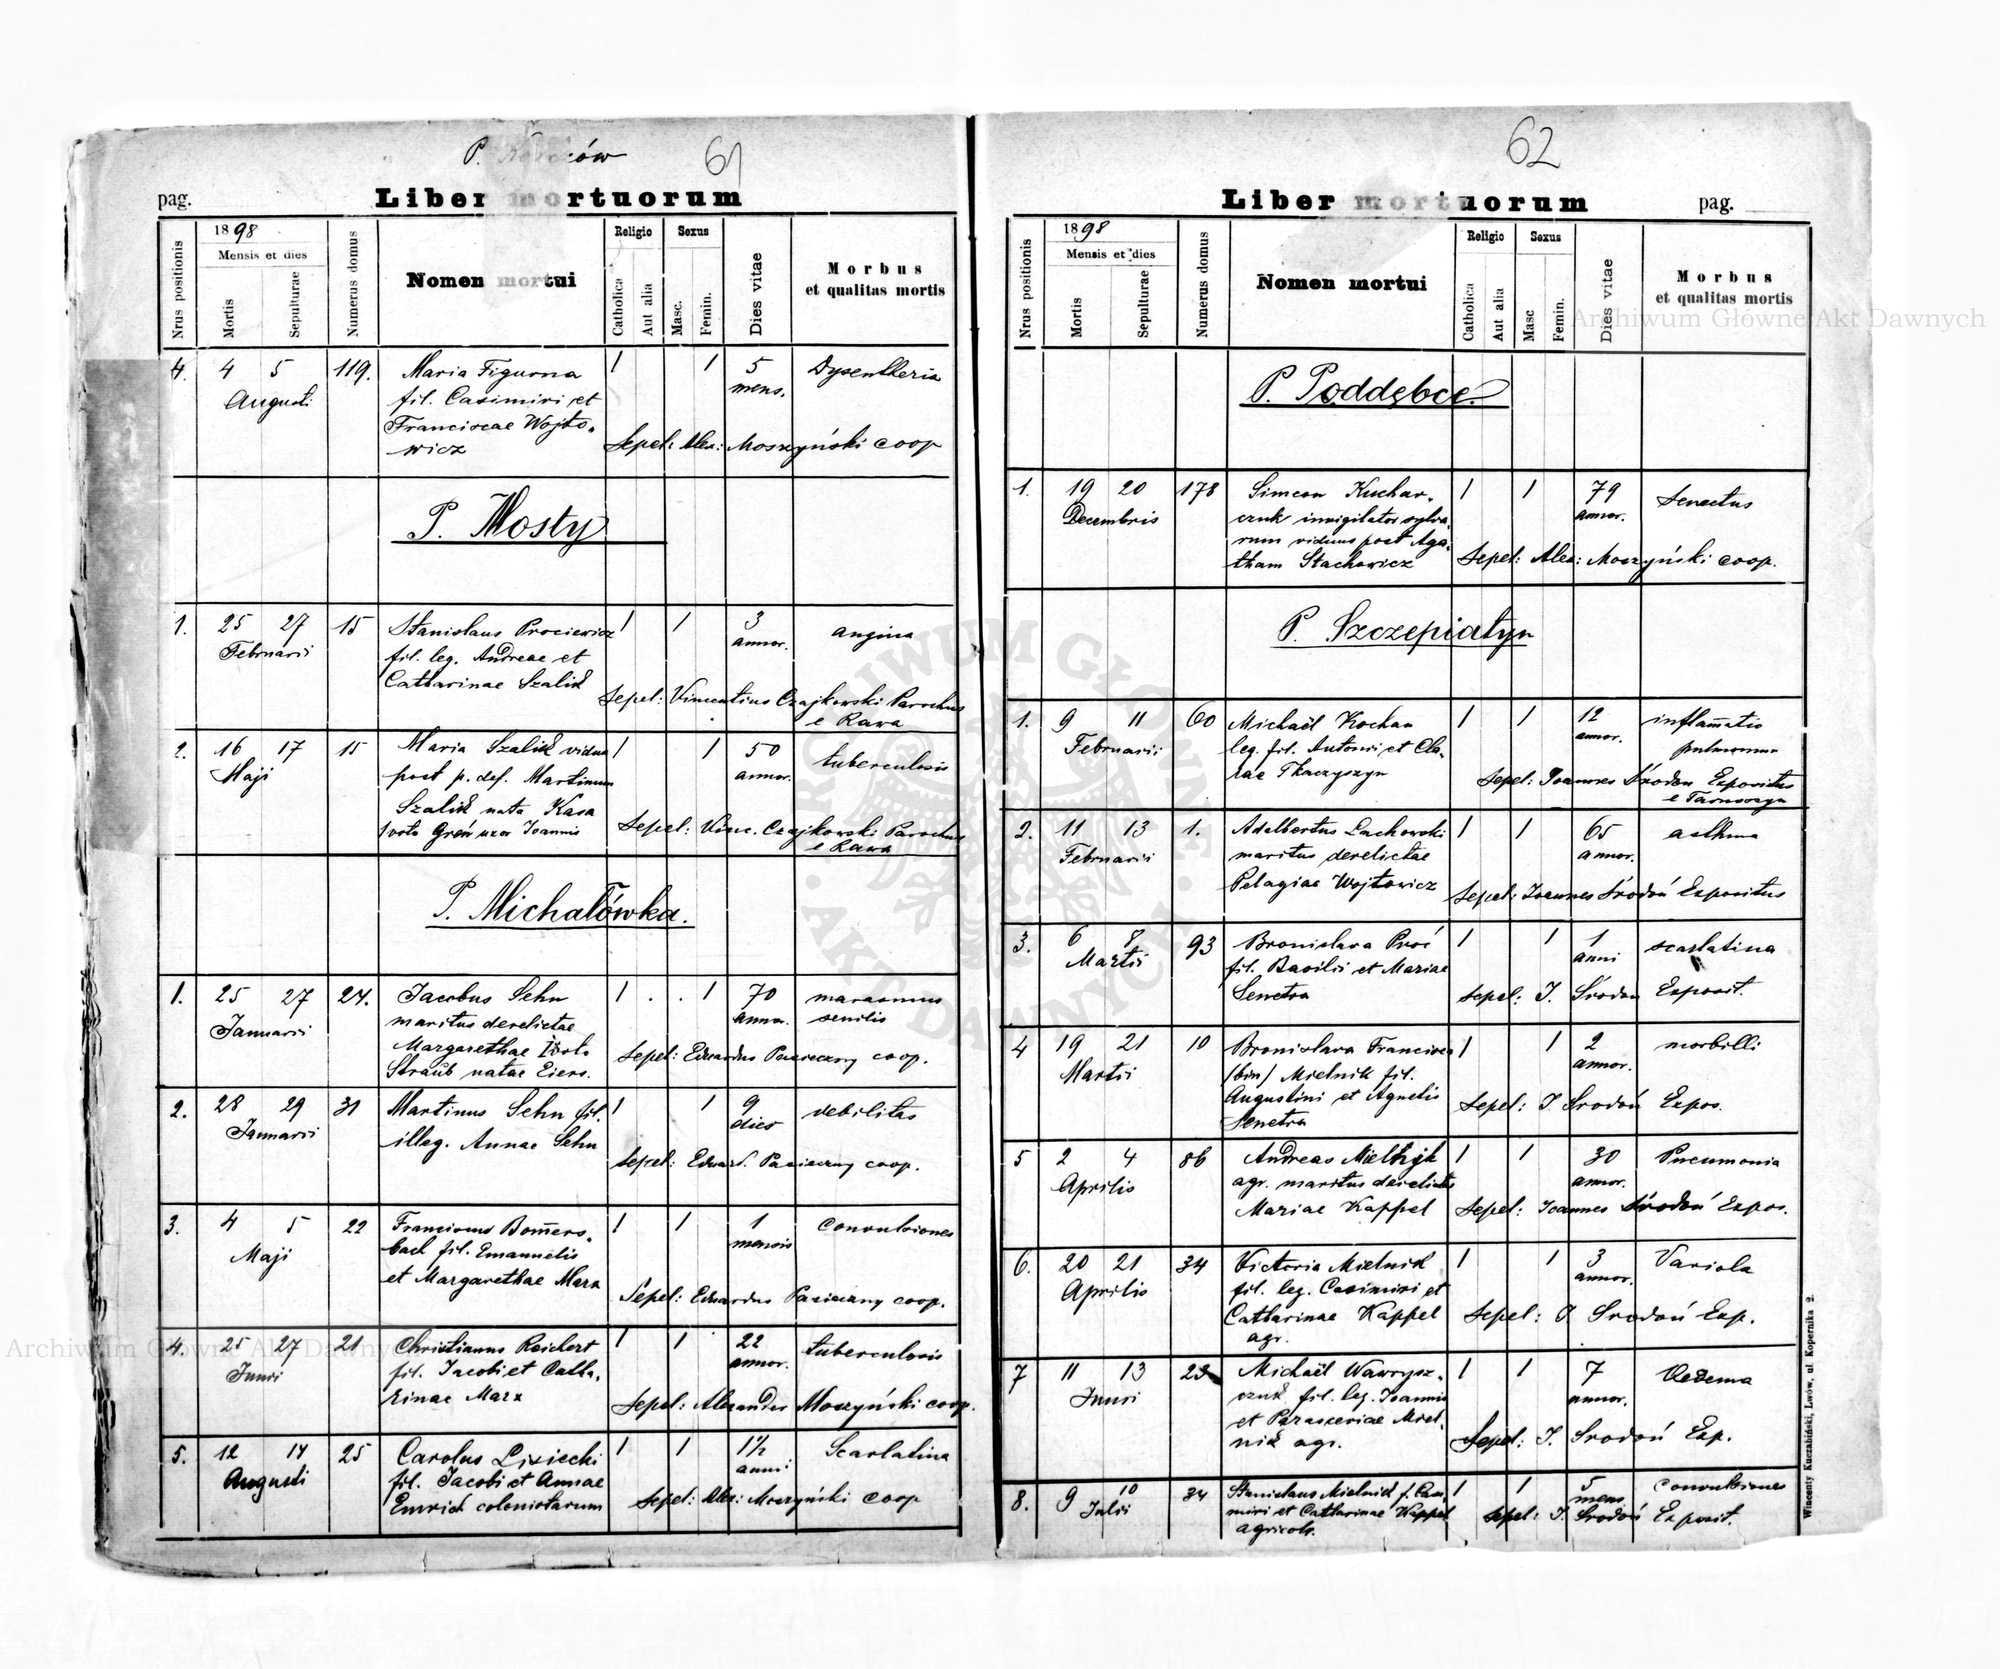 P. ców
61
pag.
Liber mortuorum
1898
Mensis et dies
Nrus positionis
Mortis
Sepulturae
Numerus domus
Nomen mortui
Religio
Catholica
Aut alia
Sexus
Masc.
Femin.
Dies vitae
Morbus
et qualitas mortis
4. 4 5 119. Maria Figurna 1 1 5 Dysentheria
Augusti fil. Casimiri et mens.
Franciscae Wojto-
wicz Sepel: Alex: Moszyński coop
P. Mosty
1. 25 27 15 Stanislaus Prociewicz 1 1 3 angina
Februarii fil. leg. Andreae et annor.
Catharinae Szalik Sepel: Vincentius Czajkowski Parochus
e Rawa
2. 16 17 15 Maria Szalik vidua 1 1 50 tuberculosis
Maji post p. def. Martinum annor.
Szalik nata Kasa
1voto Greń uxor Joannis Sepel: Vinc. Czajkowski Parochus
e Rawa
P. Michałówka.
1. 25 27 24. Jacobus Sehn 1 . . 1 70 marasmus
Januarii maritus derelictae annor. senilis
Margarethae voto Sepel: Eduardus Pasieczny coop.
Straub natae Eiers.
2. 28 29 31 Martinus Sehn fil. 1 1 9 debilitas
Januarii illeg. Annae Sehn dies
Sepel: Eduard. Pasieczny coop.
3. 4 5 22 Franciscus Bom̄ers- 1 1 1 convulsiones
Maji bach fil. Emanuelis mensis
et Margarethae Marx Sepel: Eduardus Pasieczny coop.
4. 25 27 21 Christianus Reichert 1 1 22 tuberculosis
Junii fil. Jacobi et Catha- annor.
rinae Marx Sepel: Alexander Moszyński coop.
5. 12 14 25 Carolus Lisiecki 1 1 1½ Scarlatina
Augusti fil. Jacobi et Annae anni
Emrich colonistarum Sepel: Alex: Moszyński coop
62
Liber mortuorum
pag.
1898
Mensis et dies
Nrus positionis
Mortis
Sepulturae
Numerus domus
Nomen mortui
Religio
Catholica
Aut alia
Sexus
Masc
Femin.
Dies vitae
Morbus
et qualitas mortis
P. Poddębce.
1. 19 20 178 Simeon Kuchar- 1 1 79 Senectus
Decembris czuk invigilator sylva- annor.
rum viduus post Aga-
tham Stachowicz Sepel: Alex: Moszyński coop.
P. Szczepiatyn
1. 9 11 60 Michaël Kochan 1 1 12 inflam̄atio
Februarii leg. fil. Antonii et Cla- annor. pulmonum
rae Tkaczyszyn Sepel: Joannes Środoń Expositus
e Tarnoszyn
2. 11 13 1. Adalbertus Lachowski 1 1 65 asthma
Februarii maritus derelictae annor.
Pelagiae Wojtowicz Sepel: Joannes Środoń Expositus
3. 6 8 93 Bronislava Proć 1 1 1 scarlatina
Martii fil. Basilii et Mariae anni
Senetra Sepel: J. Środoń Exposit.
4 19 21 10 Bronislava Francisca 1 1 2 morbilli
Martii (bin) Mielnik fil. annor.
Augustini et Agnetis Sepel: J. Środoń Expos.
Senetra
5 2 4 86 Andreas Mielnyk 1 1 30 Pneumonia
Aprilis agr. maritus derelictae annor.
Mariae Kappel Sepel: Joannes Środoń Expos.
6. 20 21 34 Victoria Mielnik 1 1 3 Variola
Aprilis fil. leg. Casimiri et annor.
Catharinae Kappel Sepel: J Środoń Exp.
agr.
7 11 13 23 Michaël Wawrysz- 1 1 7 Oedema
Junii czuk fil. leg. Joannis annor.
et Parasceviae Miel-
nik agr. Sepel: J. Środoń Exp.
8. 9 10 34 Stanislaus Mielnik f. Casi- 1 1 5 convulsiones
Julii miri et Catharinae Kappel mens
agricol. Sepel: J. Środoń Exposit.
Wincenty Kuczabiński, Lwów, ul. Kopernika 2.
Archiwum Główne Akt Dawnych
Archiwum Główne Akt Dawnych
ARCHIWUM GŁÓWNE
AKT DAWNYCH